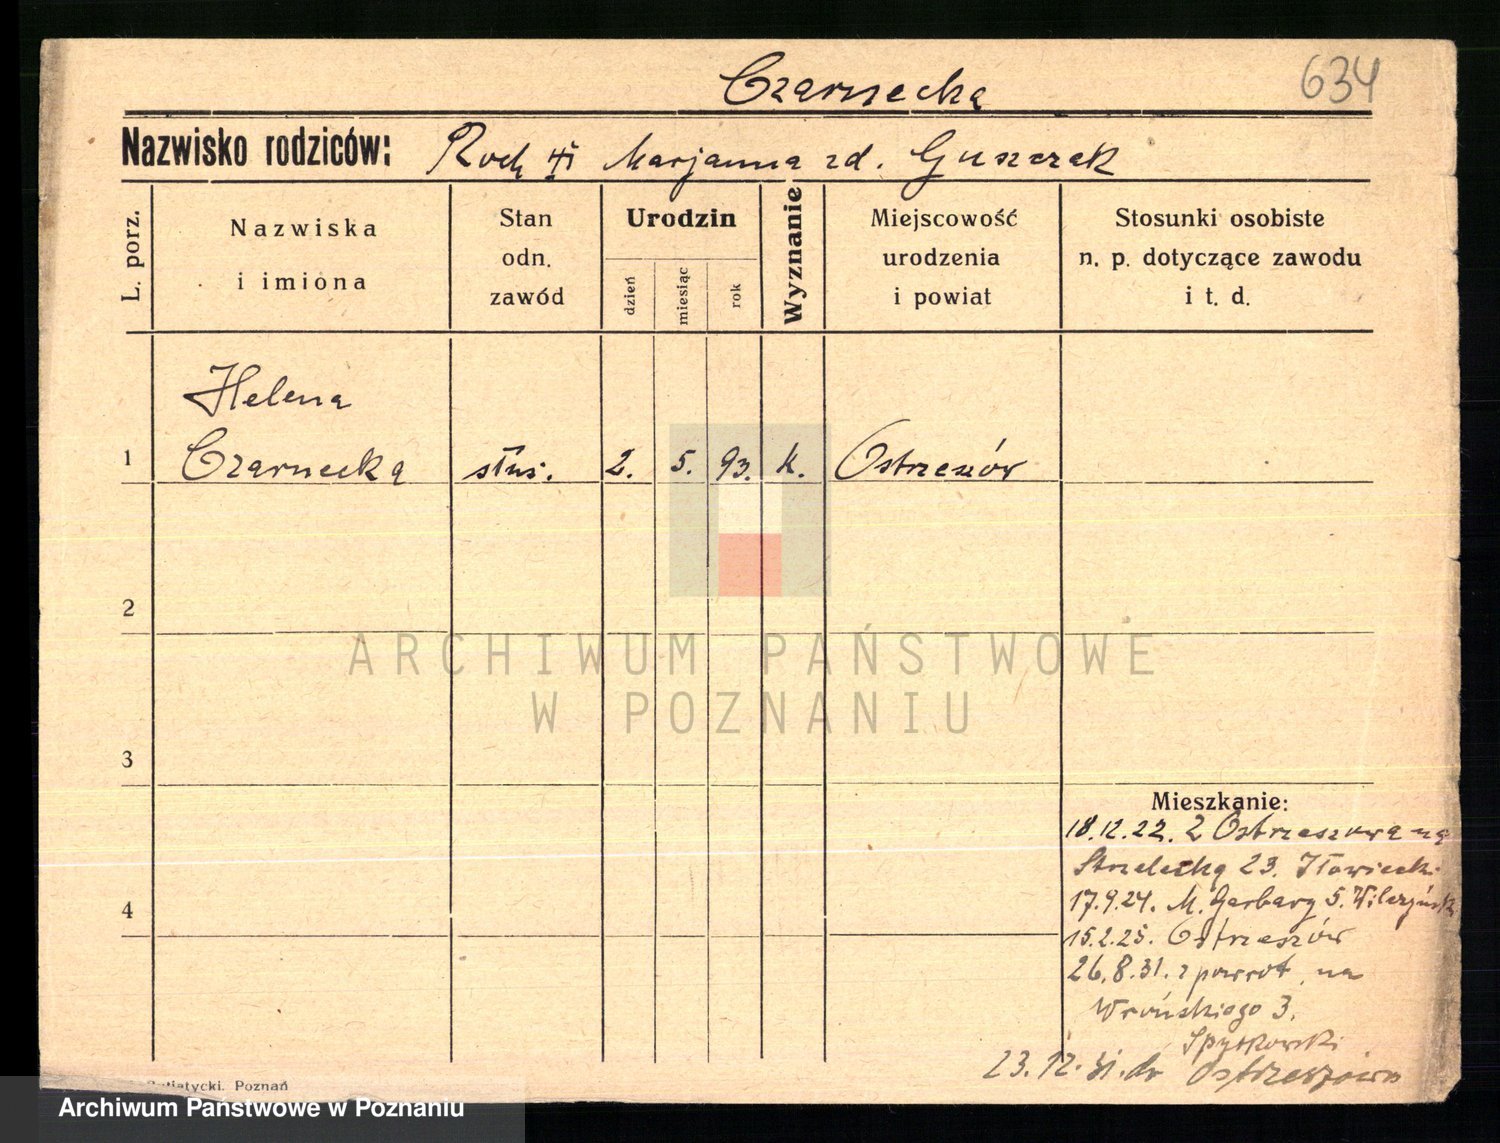 634
Czarnecka
Nazwisko rodziców: Roch i Marjanna zd. Guszczak
L. porz.
Nazwiska
i imiona
Stan
odn.
zawód
Urodzin
dzień
miesiąc
rok
Wyznanie
Miejscowość
urodzenia
i powiat
Stosunki osobiste
n. p. dotyczące zawodu
i t. d.
Helena
1 Czarnecka służ. 2. 5. 93. k. Ostrzeszów
2
ARCHIWUM PAŃSTWOWE
W POZNANIU
3
Mieszkanie:
18.12.22. z Ostrzeszowa na
Strzelecką 23. Iłowiecki
4
17.9.24. M. Garbary 5. Wilczyński
15.2.25. Ostrzeszów
26.8.31. z powrot. na
Wrońskiego 3.
Spytkowski
23.12.31. do Ostrzeszowa
Poznań
Archiwum Państwowe w Poznaniu